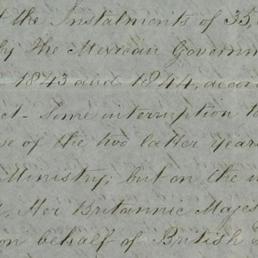 t the Instalments of 35,
by the Mexican Governm
1843 and 1844, accor
ct - Some interruption to
se of the two latter years
Ministry; but on the
Her Britannic Majes
on behalf of British